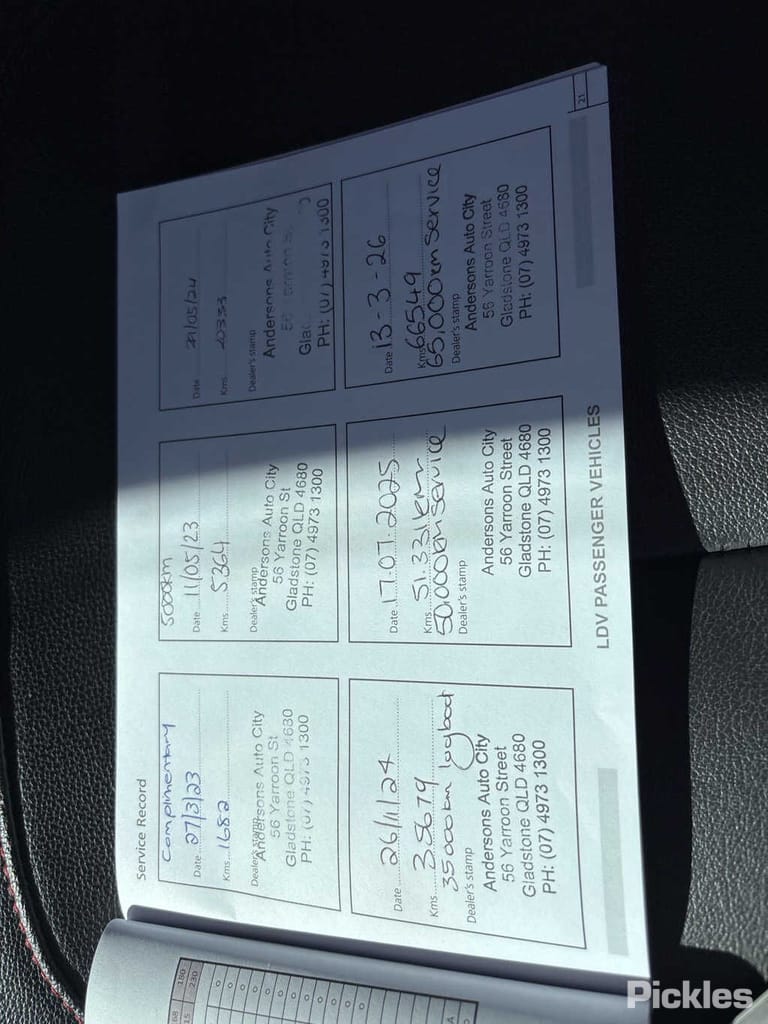 Service Record
Complimentary
Date 27/3/23
Kms 1682
Dealer's stamp
Andersons Auto City
56 Yarroon St
Gladstone QLD 4680
PH: (07) 4973 1300
5000km
Date 11/05/23
Kms 5264
Dealer's stamp
Andersons Auto City
56 Yarroon St
Gladstone QLD 4680
PH: (07) 4973 1300
Date /05/24
Kms 20333
Dealer's stamp
Andersons Auto City
56
PH: (07) 4973 1300
Date 26/11/24
Kms 35679
35000km logbook
Dealer's stamp
Andersons Auto City
56 Yarroon Street
Gladstone QLD 4680
PH: (07) 4973 1300
Date 17.07.2025
Kms 51.331km
50,000km service
Dealer's stamp
Andersons Auto City
56 Yarroon Street
Gladstone QLD 4680
PH: (07) 4973 1300
Date 13-3-26
Kms 66549
65,000km Service
Dealer's stamp
Andersons Auto City
56 Yarroon Street
Gladstone QLD 4680
PH: (07) 4973 1300
LDV PASSENGER VEHICLES
21
Pickles